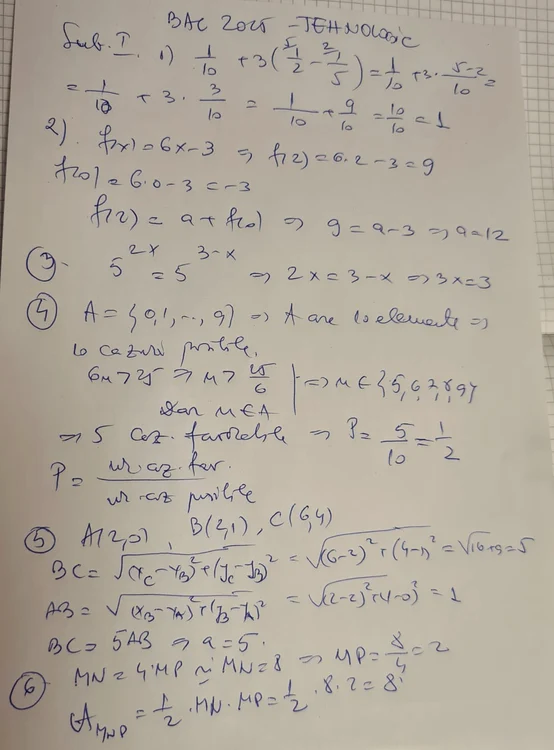 BAC 2025 - TEHNOLOGIC
Sub. I. 1) 1/10 + 3(5)1/2 - 2)1/5) = 1/10 + 3 · (5-2)/10 =
= 1/10 + 3 · 3/10 = 1/10 + 9/10 = 10/10 = 1
2) f(x) = 6x-3 ⇒ f(2) = 6·2-3 = 9
f(0) = 6·0-3 = -3
f(2) = a + f(0) ⇒ 9 = a-3 ⇒ a=12
3. 5^(2x) = 5^(3-x) ⇒ 2x = 3-x ⇒ 3x=3
4 A = {0,1,..., 9} ⇒ A are 10 elemente ⇒
10 cazuri posibile.
6n > 25 ⇒ n > 25/6 | ⇒ n ∈ {5,6,7,8,9}
dar n∈A
⇒ 5 caz. favorabile ⇒ P = 5/10 = 1/2
P = nr. caz. fav. / nr. caz posibile
5 A(2,0), B(2,1), C(6,4)
BC = √((xC-xB)²+(yC-yB)²) = √((6-2)²+(4-1)²) = √16+9 = 5
AB = √((xB-xA)²+(yB-yA)²) = √((2-2)²+(1-0)²) = 1
BC = 5AB ⇒ a = 5.
6 MN = 4·MP și MN = 8 ⇒ MP = 8/4 = 2
A_MNP = 1/2 · MN · MP = 1/2 · 8 · 2 = 8.